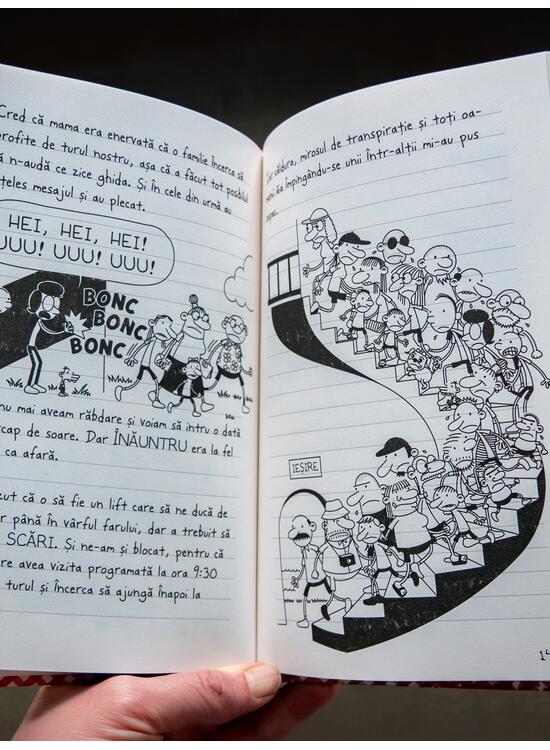 Cred că mama era enervată că o familie încerca să
profite de turul nostru, așa că a făcut tot posibilul
n-audă ce zice ghida. Și în cele din urmă au
mesajul și au plecat.
HEI, HEI, HEI!
UUU! UUU!
BONC
BONC
BONC
nu mai aveam răbdare și voiam să intru o dată
cap de soare. Dar ÎNĂUNTRU era la fel
ca afară.
că o să fie un lift care să ne ducă de
până în vârful farului, dar a trebuit să
SCĂRI. Și ne-am și blocat, pentru că
avea vizita programată la ora 9:30
turul și încerca să ajungă înapoi la
căldura, mirosul de transpirație și toți oa-
menii ăia împingându-se unii într-alții mi-au pus
IEȘIRE